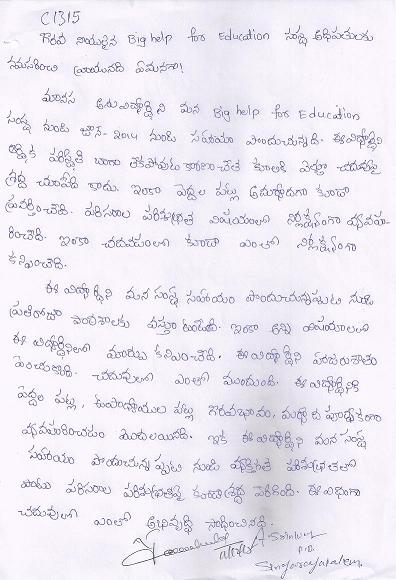 C1315
గౌరవ నీయులైన Big help for Education సంస్థ అధిపతులకు
నమస్కరించి వ్రాయునది ఏమనగా!
మానస అను విద్యార్థిని మన Big help for Education
సంస్థ నుండి జూన్-2014 నుండి సహాయం పొందుచున్నది. ఈ విద్యార్థిని
ఆర్థిక పరిస్థితి బాగా లేకపోవుట కారణంచేత కూలికి వెళ్తూ చదువుపై
శ్రద్ధ చూపేది కాదు. ఇంకా పెద్దల పట్ల అమర్యాదగా కూడా
ప్రవర్తించేది. పరిసరాల పరిశుభ్రత విషయంలో నిర్లక్ష్యంగా వ్యవహ-
రించేది. ఇంకా చదవడంలో కూడా ఎంతో నిర్లక్ష్యంగా
కనిపించేది.
ఈ విద్యార్థిని మన సంస్థ సహాయం పొందుచున్నప్పటి నుండి
ప్రతిరోజూ పాఠశాలకు వస్తూ ఉంటుంది. ఇంకా అన్ని విషయాలలో
ఈ విద్యార్థినిలో మార్పు కనిపించింది. ఈ విద్యార్థిని హాజరుశాతం
పెంచుకుంది. చదువులో ఎంతో ముందుంది. ఈ విద్యార్థినికి
పెద్దల పట్ల, ఉపాధ్యాయుల పట్ల గౌరవభావం, మర్యాద పూర్వకంగా
వ్యవహరించడం మొదలయినది. ఇక ఈ విద్యార్థిని మన సంస్థ
సహాయం పొందుచున్నప్పటి నుండి వ్యక్తిగత పరిశుభ్రతతో
పాటు పరిసరాల పరిశుభ్రతపై కూడా శ్రద్ధ పెరిగింది. ఈ విధంగా
చదువులో ఎంతో అభివృద్ధి సాధించినది.
A. Srinivas
Singarayapalem